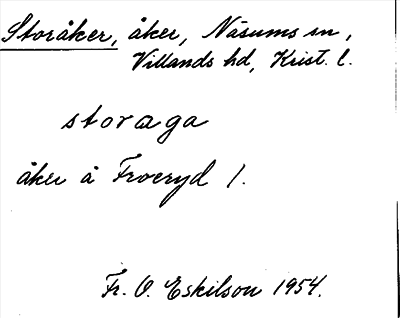 Storåker, åker, Näsums sn,
Villands hd, Krist. l.
storaga
åker å Froeryd 1.
Fr. O. Eskilson 1954.